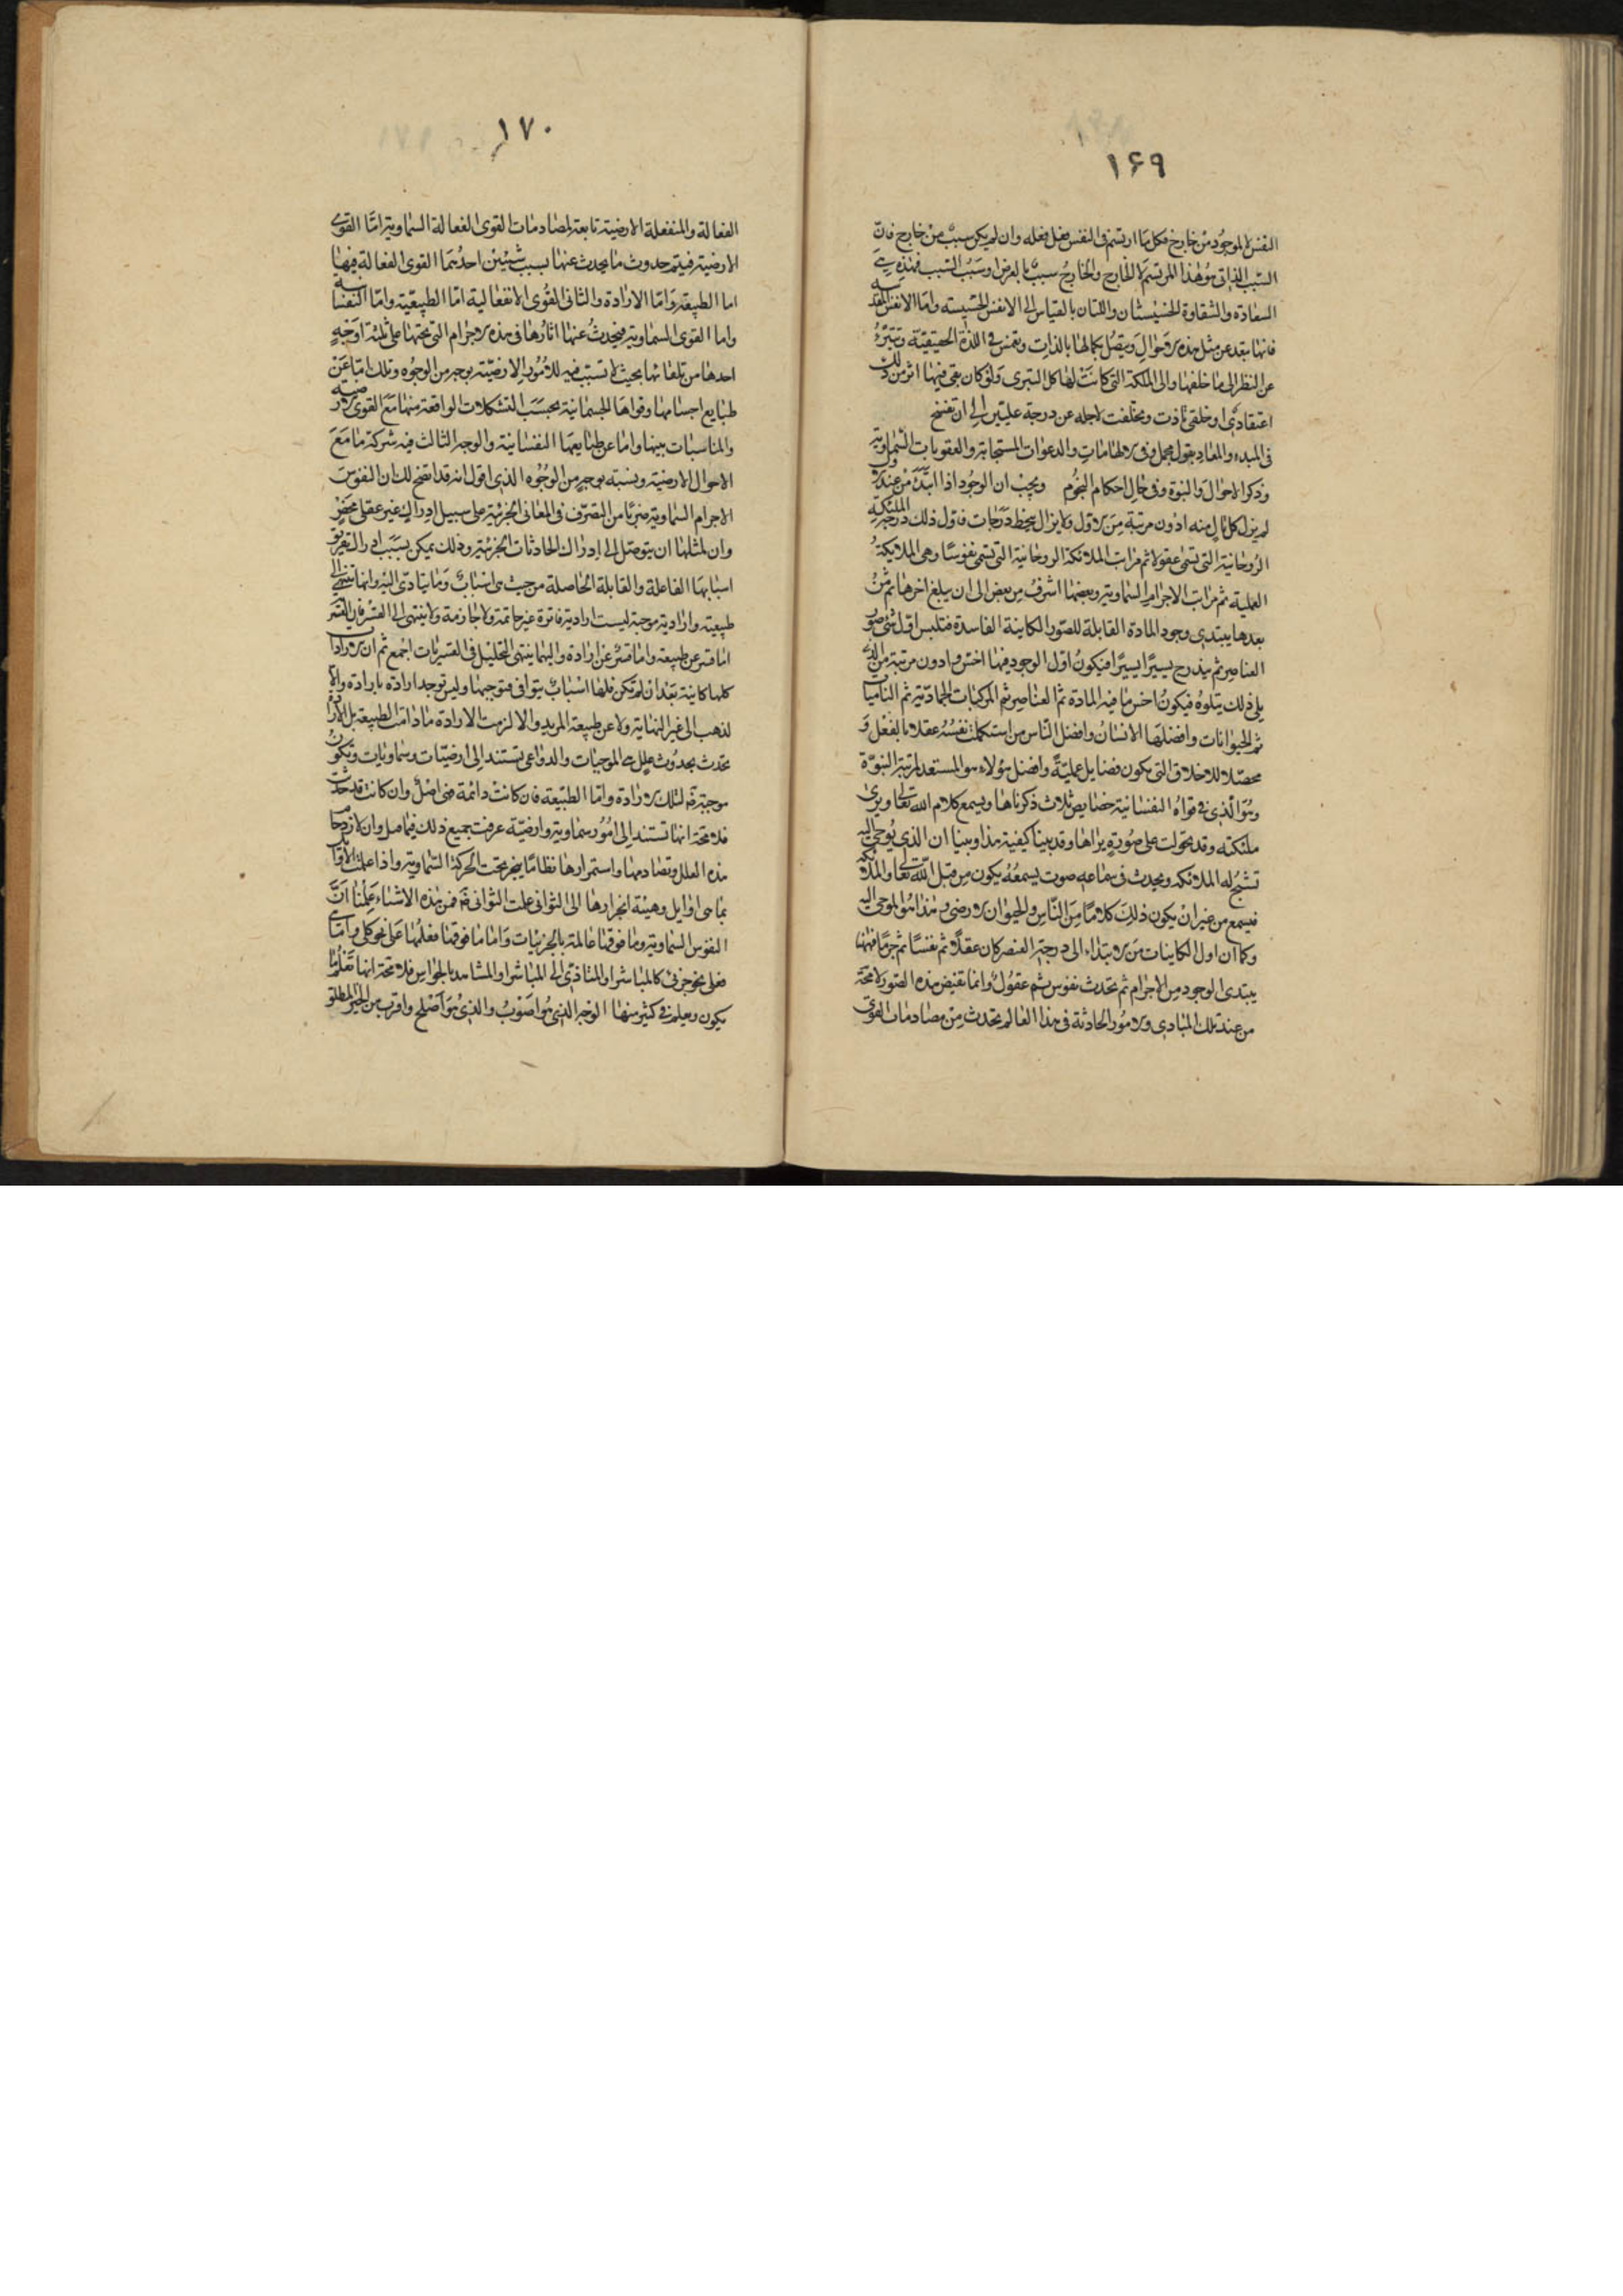 ۱۶۹
النفس لا الموجود من خارج فكل ما ارتسم فى النفس فعل فعله وان لم يكن سبب من خارج فان
السبب الذاتى هو هذا المرتسم لا الخارج والخارج سبب بالعرض او سبب السبب فهذه هى
السعادة والشقاوة الخسيستان واللتان بالقياس الى الانفس الخسيسه واما الانفس المقدسه
فانها تبعد عن مثل هذه الاحوال وتتصل بكمالها بالذات وتغمس فى اللذة الحقيقية وتتبرء
عن النظر الى ما خلفها والى الملكة التى كانت لها كل التبرى ولو كان بقى فيها اثر من ذلك
اعتقادى او خلقى تاذت وتخلفت لاجله عن درجة عليين الى ان تفسخ
فى المبدء والمعاد بقول مجمل وفى الالهامات والدعوات المستجابة والعقوبات السماوية
وذكر الاحوال والنبوة وفى حال احكام النجوم ويجب ان الوجود اذا ابتدء من عند الاول
لم يزل كل تال منه ادون مرتبة من الاول ولا يزال ينحط درجات فاول ذلك درجة الملئكة
الروحانية التى تسمى عقولا ثم مراتب الملائكة الروحانية التى تسمى نفوسا وهى الملايكة
العملية ثم مراتب الاجرام السماوية وبعضها اشرف من بعض الى ان يبلغ اخرها ثم من
بعدها يبتدى وجود المادة القابلة للصور الكاينة الفاسدة فتلبس اول شئ صور
العناصر ثم يتدرج يسيرا يسيرا فيكون اول الوجود فيها اخس وادون مرتبة من الذى
يلى ذلك يتلوه فيكون اخس ما فيه المادة ثم العناصر ثم المركبات الجمادية ثم الناميات
ثم الحيوانات وافضلها الانسان وافضل الناس من استكملت نفسه عقلا بالفعل و
محصلا للاخلاق التى يكون فضايل عملية وافضل هؤلاء هو المستعد لمرتبة النبوة
وهو الذى فى قواه النفسانية خصايص ثلاث ذكرناها ويسمع كلام الله تعالى ويرى
ملئكته وقد تحولت على صورة يراها وقد بينا كيفية هذا وبينا ان الذى يوحى اليه
تشبح له الملائكه ويحدث فى سماعه صوت يسمعه يكون من قبل الله تعالى والملائكه
فيسمع من غير ان يكون ذلك كلاما من الناس والحيوان الارضى وهذا هو الموحى اليه
وكما ان اول الكاينات من الابتداء الى درجة العنصر كان عقلا ثم نفسا ثم جرما فههنا
يبتدى الوجود من الاجرام ثم تحدث نفوس ثم عقول وانما تفيض هذه الصور لا محة
من عند تلك المبادى والامور الحادثة فى هذا العالم يحدث من مصادمات القوى
۱۷۰
الفعالة والمنفعلة الارضية تابعة لمصادمات القوى الفعالة السماوية اما القوى
الارضية فيتم حدوث ما يحدث عنها بسبب شيئين احدهما القوى الفعالة فيها
اما الطبيعة واما الارادة والثانى القوى الانفعالية اما الطبيعية واما النفسانية
واما القوى السماوية فيحدث عنها اثارها فى هذه الاجرام التى تحتها على ثلثة اوجه
احدها من تلقائها بحيث لا تسبب فيه للامور الارضية بوجه من الوجوه وتلك اما عن
طبايع اجسامها وقواها الجسمانية بحسب التشكلات الواقعة منها مع القوى الارضية
والمناسبات بينها واما عن طبايعها النفسانية والوجه الثالث فيه شركة ما مع
الاحوال الارضية وبنسبة بوجه من الوجوه الذى اقول انه قد اتضح لك ان النفوس
الاجرام السماوية ضربا من التصرف فى المعانى الجزئية على سبيل ادراك غير عقلى محض
وان لمثلها ان يتوصل الى ادراك الحادثات الجزئية وذلك يمكن بسبب ادراك تفريق
اسبابها الفاعلة والقابلة الحاصلة من حيث هى اسباب وما يتادى اليه وانها تنتهى الى
طبيعية وارادية موجبة ليست ارادية فاترة غير حاتمة ولا جازمة ولا ينتهى الى القسر فان القسر
اما قسر عن طبيعة واما قسر عن ارادة واليهما ينتهى التحليل فى القسريات اجمع ثم ان الارادات
كلها كاينة بعد ان لم تكن فلها اسباب يتوافى فتوجبها وليس توجد ارادة بارادة والا
لذهب الى غير النهاية ولا عن طبيعة المريد والا لزمت الارادة ما دامت الطبيعة بل الارادة
تحدث بحدوث علل هى الموجبات والدواعى تستند الى ارضيات وسماويات وتكون
موجبة لتلك الارادة واما الطبيعة فان كانت دائمة فهى اصل وان كانت قد حدثت
فلا محة انها تستند الى امور سماوية وارضية عرفت جميع ذلك فيما سل وان لازدحام
هذه العلل وتصادمها واستمرارها نظاما ينجر تحت الحركة السماوية واذا علمت الاوايل
بما هى اوايل وهيئة انجرارها الى الثوانى علمت الثوانى فمن هذه الاشياء علمنا ان
النفوس السماوية وما فوقها عالمة بالجزئيات واما ما فوقها فعلمها على نحو كلى واما هى
فعلى نحو جزئى كالمباشر او المتاذى الى المباشر او المشاهد بالحواس فلا محة انها تعلم ما
يكون ويعلم فى كثير منها الوجه الذى هو اصوب والذى هو اصلح واقرب من الخير المطلق